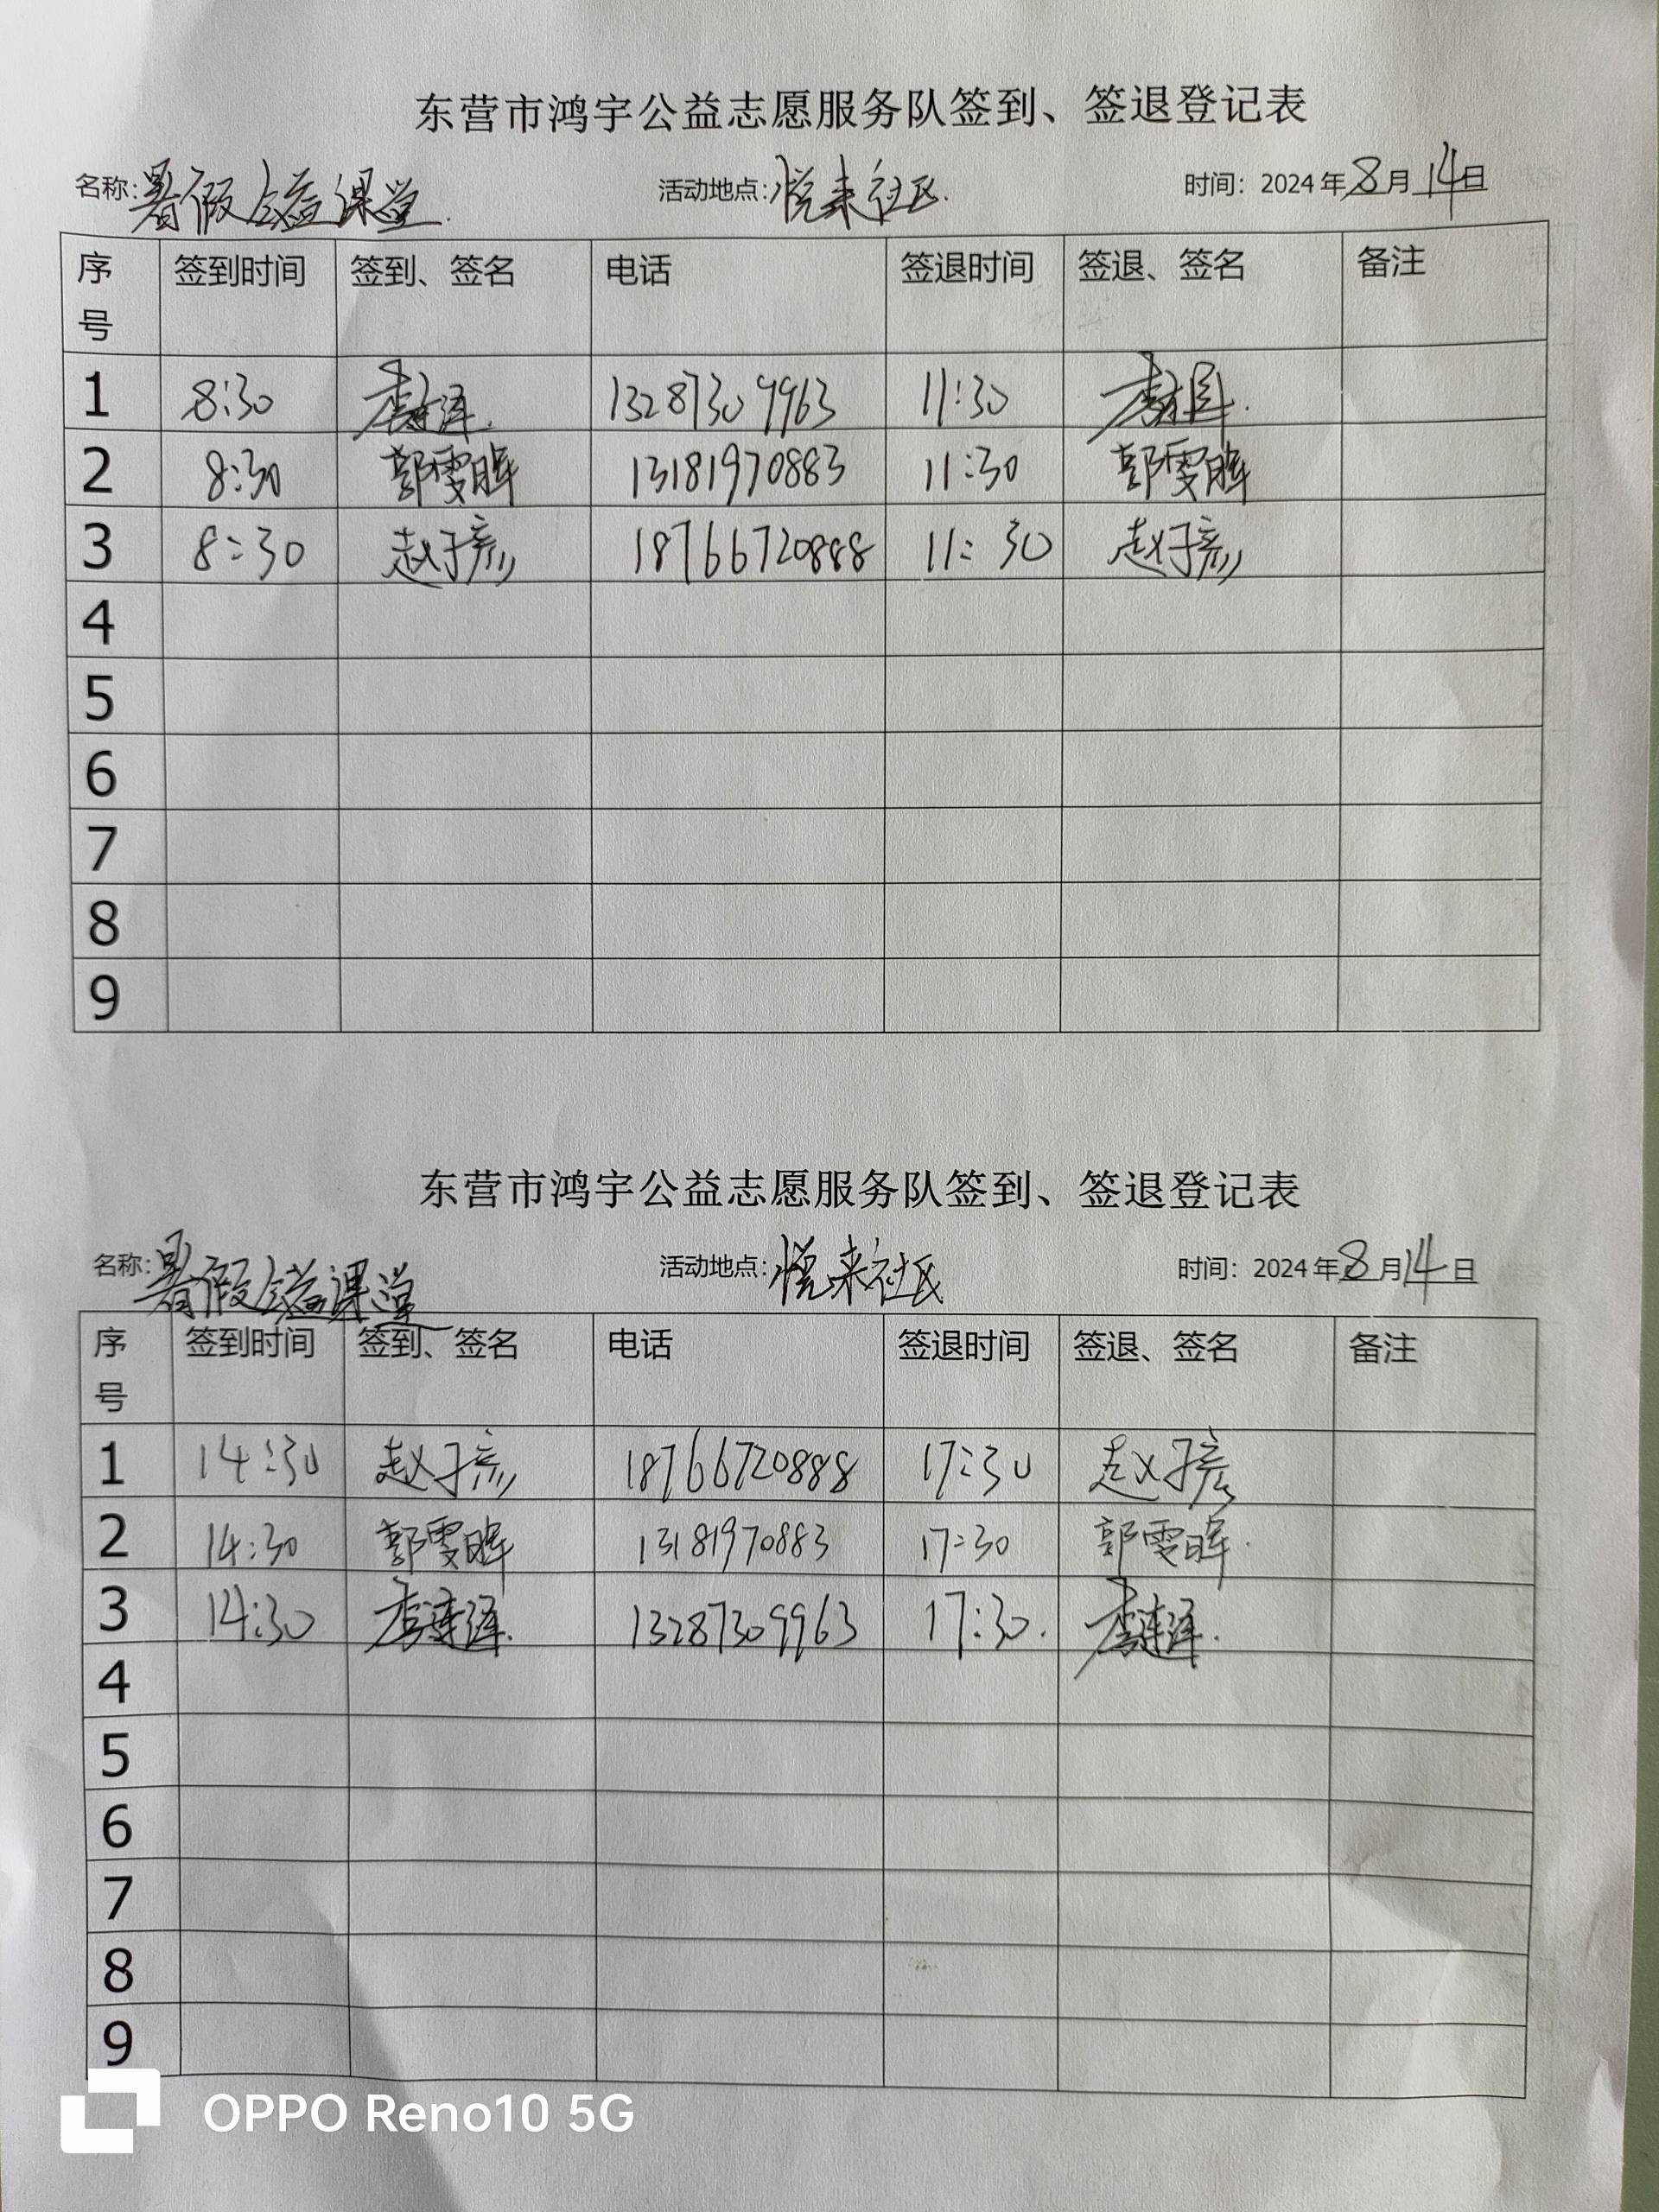 东营市鸿宇公益志愿服务队签到、签退登记表
名称：暑假公益课堂 活动地点：悦来社区 时间：2024年8月14日
序号 签到时间 签到、签名 电话 签退时间 签退、签名 备注
1 8:30 李 13287309963 11:30 李
2 8:30 郭雯晖 13181970883 11:30 郭雯晖
3 8:30 赵子彦 18766720888 11:30 赵子彦
4
5
6
7
8
9
东营市鸿宇公益志愿服务队签到、签退登记表
名称：暑假公益课堂 活动地点：悦来社区 时间：2024年8月14日
序号 签到时间 签到、签名 电话 签退时间 签退、签名 备注
1 14:30 赵子彦 18766720888 17:30 赵子彦
2 14:30 郭雯晖 13181970883 17:30 郭雯晖
3 14:30 李 13287309963 17:30 李
4
5
6
7
8
9
OPPO Reno10 5G